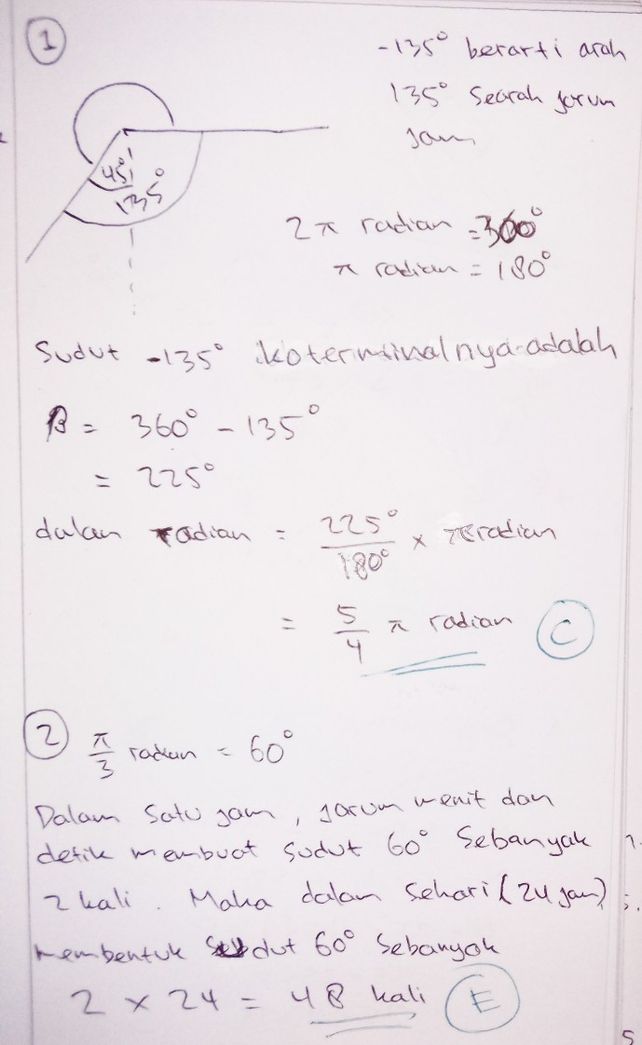 1
-135° berarti arah
135° Searah jarum
Jam
45°
135°
2π radian = 360°
π radian = 180°
Sudut -135° koterminalnya adalah
β = 360° - 135°
= 225°
dalam radian = 225°/180° × π radian
= 5/4 π radian C
2 π/3 radian = 60°
Dalam satu jam, jarum menit dan
detik membuat sudut 60° Sebanyak
2 kali. Maka dalam sehari (24 jam)
membentuk sudut 60° Sebanyak
2 × 24 = 48 kali E
5